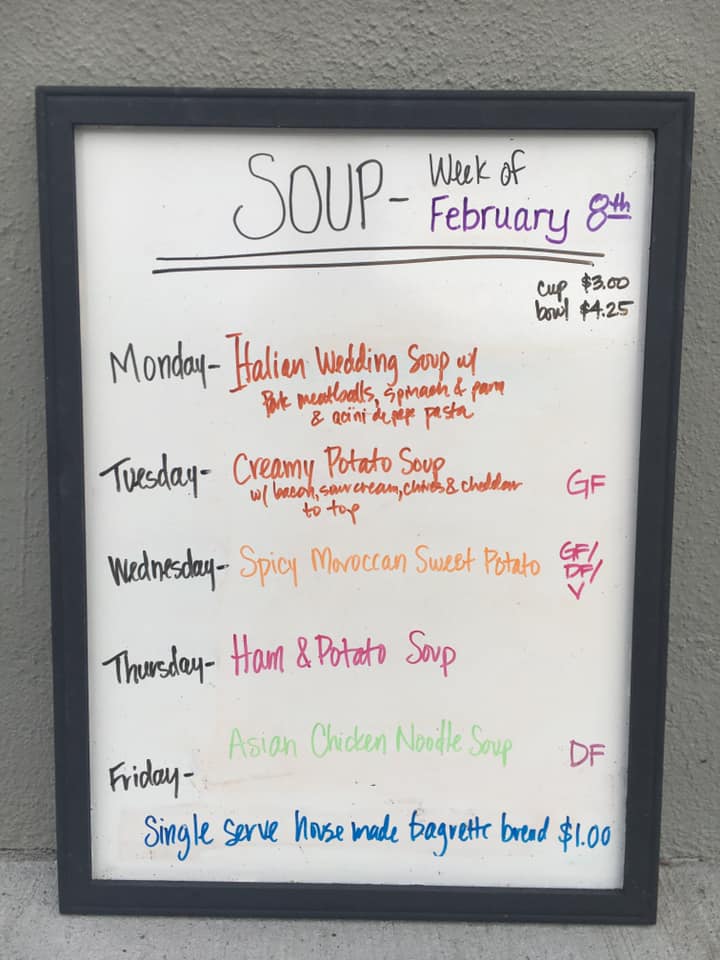 SOUP- Week of
February 8th
cup $3.00
bowl $4.25
Monday- Italian Wedding Soup w/
Pork meatballs, spinach & parm
& acini de pepe pasta
Tuesday- Creamy Potato Soup GF
w/ bacon, sour cream, chives & cheddar
to top
Wednesday- Spicy Moroccan Sweet Potato GF/
DF/
V
Thursday- Ham & Potato Soup
Asian Chicken Noodle Soup DF
Friday-
Single serve house made baguette bread $1.00